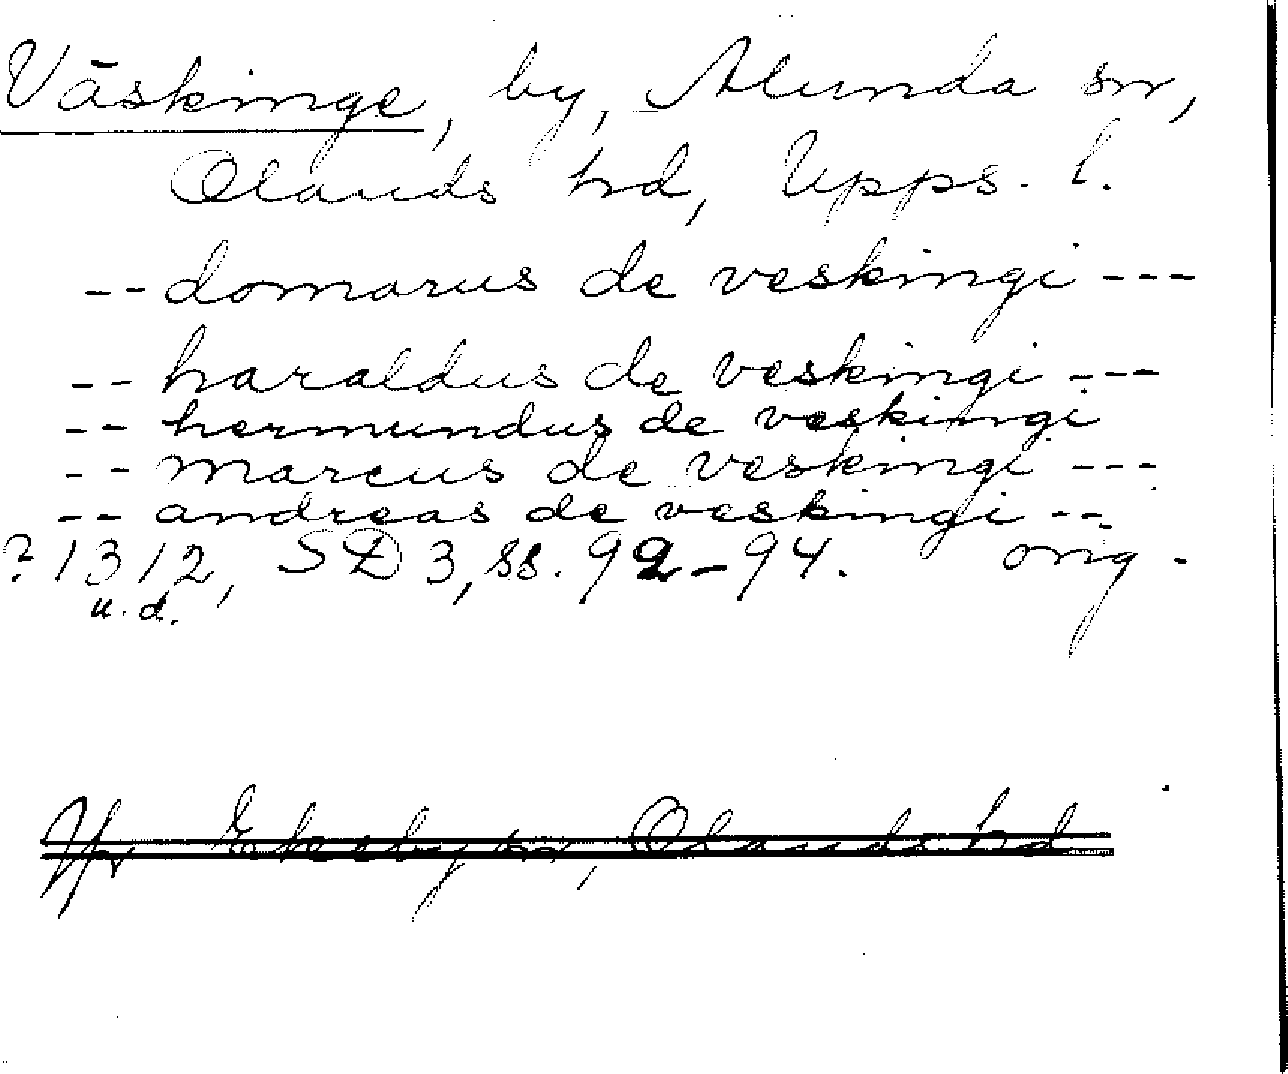 Väskinge, by, Alunda sn,
Olands hd, Upps. l.
-- domarus de veskingi ---
-- haraldus de veskingi ---
-- hermundus de veskingi
-- marcus de veskingi ---
-- andreas de veskingi --
? 1312, SD 3, ss. 92-94. orig.
u. d.
Jfr Ekeby sn, Olands hd